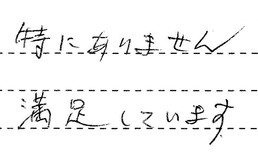 特にありません
満足しています